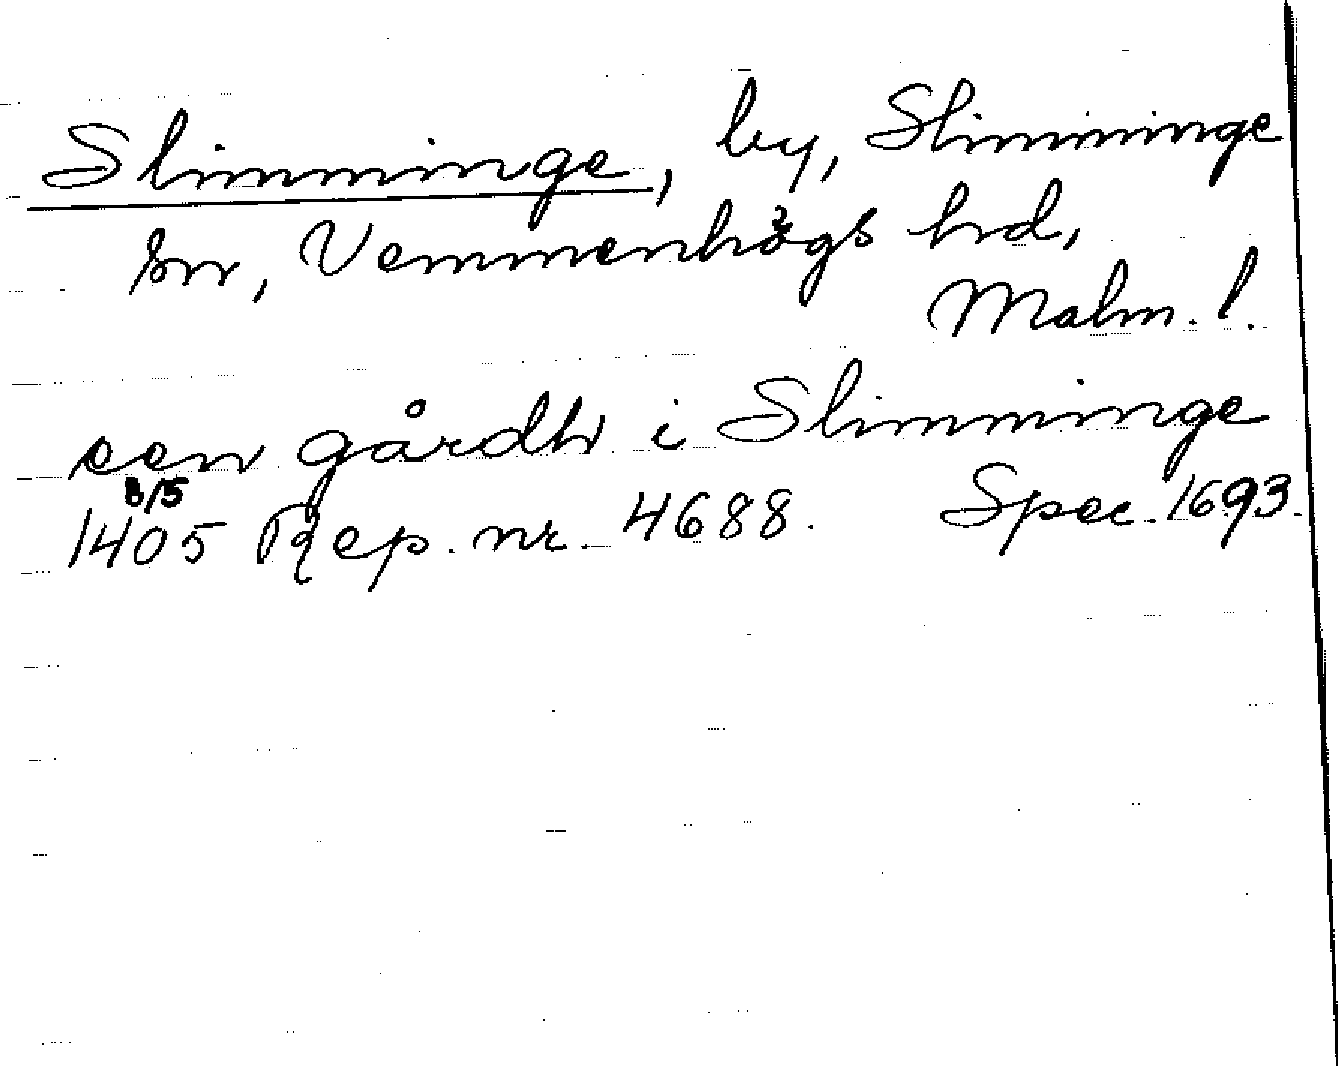 Slimminge, by, Slimminge
sn, Vemmenhögs hd,
Malm. l.
een gårdh i Slimminge
3/5
1405 Rep. nr. 4688. Spec. 1693.